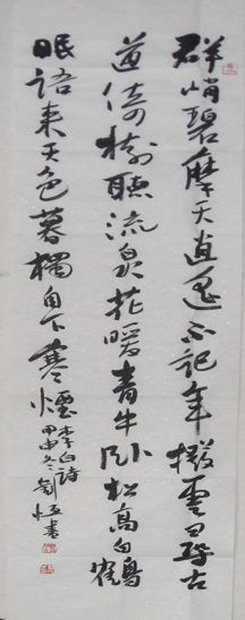 群峭碧摩天逍遥不記年撥雲尋古
道倚樹聽流泉花暖青牛卧松高白鶴
眠語来天色暮獨自下寒煙李白詩
甲申冬劉恒書